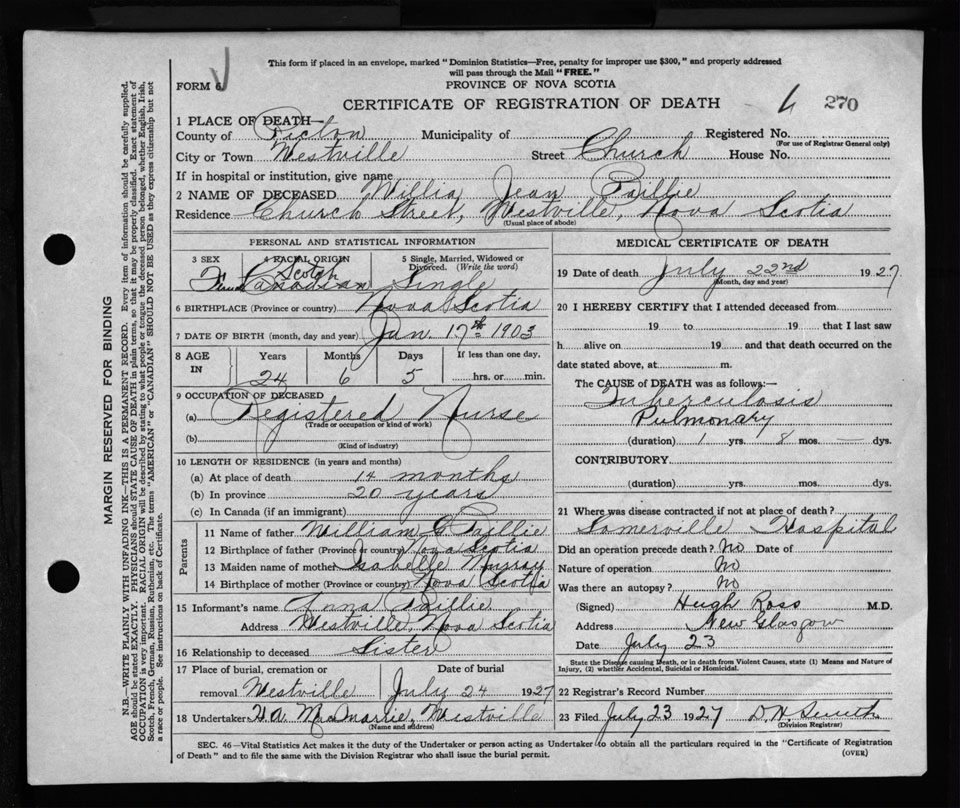 This form if placed in an envelope, marked "Dominion Statistics—Free, penalty for improper use $300," and properly addressed
will pass through the Mail "FREE."
FORM 6
PROVINCE OF NOVA SCOTIA
CERTIFICATE OF REGISTRATION OF DEATH
270
1 PLACE OF DEATH—
County of Pictou Municipality of Registered No.
(For use of Registrar General only)
City or Town Westville Street Church House No.
If in hospital or institution, give name
2 NAME OF DECEASED Willia Jean Baillie
Residence Church Street, Westville, Nova Scotia
(Usual place of abode)
PERSONAL AND STATISTICAL INFORMATION
3 SEX 4 RACIAL ORIGIN 5 Single, Married, Widowed or Divorced. (Write the word)
Scotch
Canadian Single
6 BIRTHPLACE (Province or country) Nova Scotia
7 DATE OF BIRTH (month, day and year) Jan. 17th 1903
8 AGE IN Years Months Days If less than one day,
24 6 5 hrs. or min.
9 OCCUPATION OF DECEASED
(a) Registered Nurse
(Trade or occupation or kind of work)
(b)
(Kind of industry)
10 LENGTH OF RESIDENCE (in years and months)
(a) At place of death 14 months
(b) In province 20 years
(c) In Canada (if an immigrant)
Parents
11 Name of father William G Baillie
12 Birthplace of father (Province or country) Nova Scotia
13 Maiden name of mother Isabelle Murray
14 Birthplace of mother (Province or country) Nova Scotia
15 Informant's name Anna Baillie
Address Westville, Nova Scotia
16 Relationship to deceased Sister
17 Place of burial, cremation or Date of burial
removal Westville July 24 1927
18 Undertaker H.A. McQuarrie, Westville
(Name and address)
MEDICAL CERTIFICATE OF DEATH
19 Date of death July 22nd 1927
(Month, day and year)
20 I HEREBY CERTIFY that I attended deceased from
19 to 19 that I last saw
h alive on 19 and that death occurred on the
date stated above, at m.
The CAUSE of DEATH was as follows:—
Tuberculosis
Pulmonary
(duration) 1 yrs. 8 mos. — dys.
CONTRIBUTORY
(duration) yrs. mos. dys.
21 Where was disease contracted if not at place of death?
Somerville Hospital
Did an operation precede death? No Date of
Nature of operation No
Was there an autopsy? No
(Signed) Hugh Ross M.D.
Address New Glasgow
Date July 23
State the Disease causing Death, or in death from Violent Causes, state (1) Means and Nature of
Injury, (2) whether Accidental, Suicidal or Homicidal.
22 Registrar's Record Number
23 Filed July 23 1927 D.H. Smith
(Division Registrar)
SEC. 46—Vital Statistics Act makes it the duty of the Undertaker or person acting as Undertaker to obtain all the particulars required in the "Certificate of Registration
of Death" and to file the same with the Division Registrar who shall issue the burial permit. (OVER)
MARGIN RESERVED FOR BINDING
N.B.—WRITE PLAINLY WITH UNFADING INK—THIS IS A PERMANENT RECORD. Every item of information should be carefully supplied.
AGE should be stated EXACTLY. PHYSICIANS should STATE CAUSE OF DEATH in plain terms, so that it may be properly classified. Exact statement of
OCCUPATION is very important. RACIAL ORIGIN will be described by stating to what people or tongue the deceased person belonged, whether English, Irish,
Scotch, French, German, Russian, Ruthenian, etc. The terms "AMERICAN" or "CANADIAN" SHOULD NOT BE USED as they express citizenship but not
a race or people. See instructions on back of Certificate.